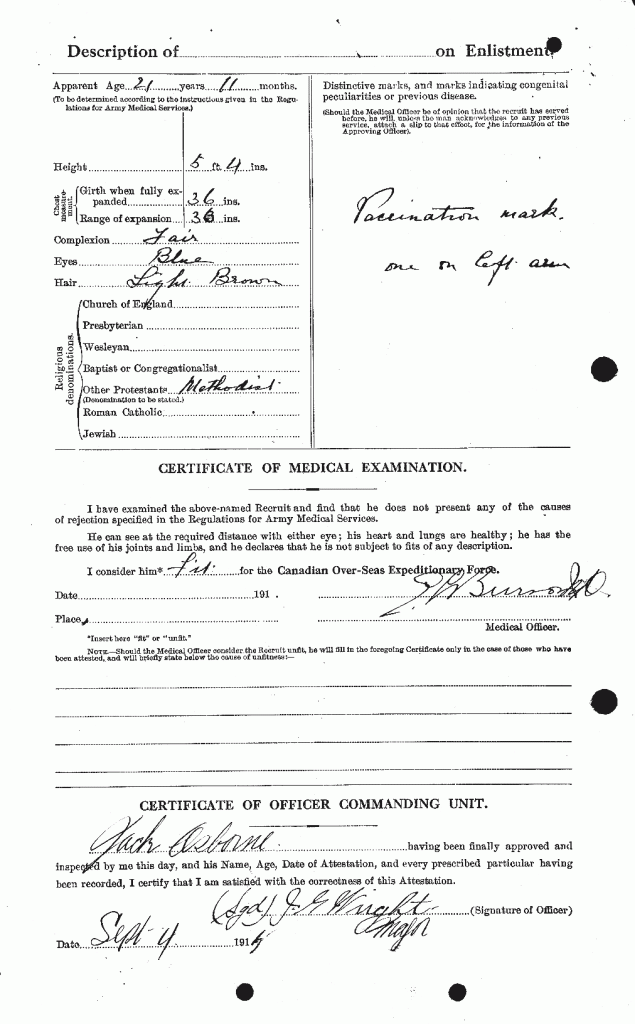 Description of on Enlistment.
Apparent Age 21 years 11 months.
(To be determined according to the instructions given in the Regu-
lations for Army Medical Services.)
Height 5 ft. 4 ins.
Chest measure-ment.
Girth when fully ex-
panded 36 ins.
Range of expansion 36 ins.
Complexion Fair
Eyes Blue
Hair Light Brown
Religious denominations.
Church of England
Presbyterian
Wesleyan
Baptist or Congregationalist
Other Protestants Methodist
(Denomination to be stated.)
Roman Catholic
Jewish
Distinctive marks, and marks indicating congenital
peculiarities or previous disease.
(Should the Medical Officer be of opinion that the recruit has served
before, he will, unless the man acknowledges to any previous
service, attach a slip to that effect, for the information of the
Approving Officer).
Vaccination mark.
one on left arm
CERTIFICATE OF MEDICAL EXAMINATION.
I have examined the above-named Recruit and find that he does not present any of the causes
of rejection specified in the Regulations for Army Medical Services.
He can see at the required distance with either eye; his heart and lungs are healthy; he has the
free use of his joints and limbs, and he declares that he is not subject to fits of any description.
I consider him* Fit for the Canadian Over-Seas Expeditionary Force.
Date 191 .
Place
Medical Officer.
*Insert here "fit" or "unfit."
NOTE.—Should the Medical Officer consider the Recruit unfit, he will fill in the foregoing Certificate only in the case of those who have
been attested, and will briefly state below the cause of unfitness:—
CERTIFICATE OF OFFICER COMMANDING UNIT.
Jack Osborne having been finally approved and
inspected by me this day, and his Name, Age, Date of Attestation, and every prescribed particular having
been recorded, I certify that I am satisfied with the correctness of this Attestation.
(Sgd) J. G Wright (Signature of Officer)
Major
Date Sept 4 191